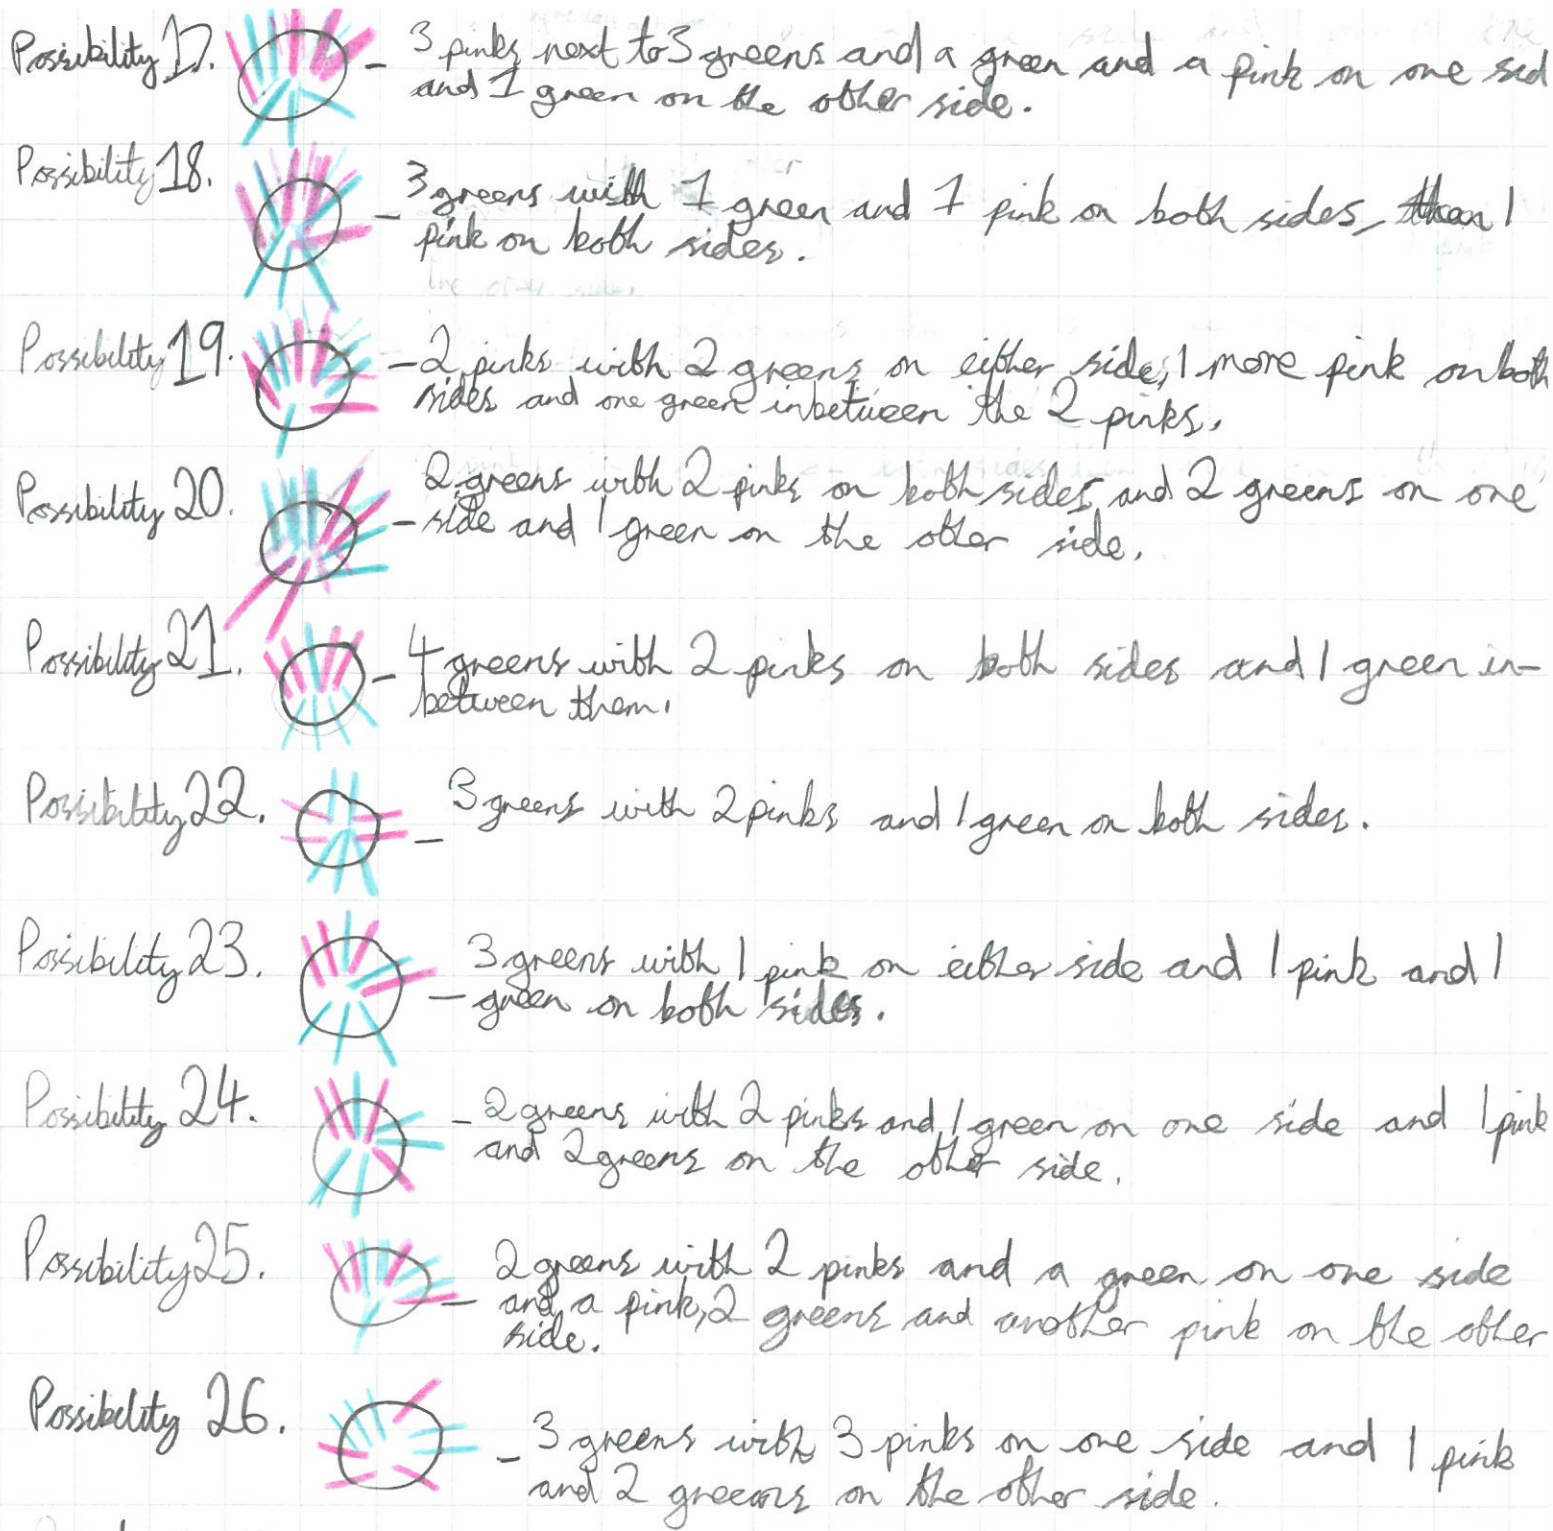 Possibility 17. - 3 pinks next to 3 greens and a green and a pink on one sid
and 1 green on the other side.
Possibility 18. - 3 greens with 1 green and 1 pink on both sides, then 1
pink on both sides.
Possibility 19. - 2 pinks with 2 greens on either side, 1 more pink on both
sides and one green inbetween the 2 pinks.
Possibility 20. 2 greens with 2 pinks on both sides, and 2 greens on one
- side and 1 green on the other side.
Possibility 21. - 4 greens with 2 pinks on both sides and 1 green in-
between them.
Possibility 22. - 3 greens with 2 pinks and 1 green on both sides.
Possibility 23. 3 greens with 1 pink on either side and 1 pink and 1
- green on both sides.
Possibility 24. - 2 greens with 2 pinks and 1 green on one side and 1 pink
and 2 greens on the other side.
Possibility 25. 2 greens with 2 pinks and a green on one side
- and a pink, 2 greens and another pink on the other
side.
Possibility 26. - 3 greens with 3 pinks on one side and 1 pink
and 2 greeens on the other side.